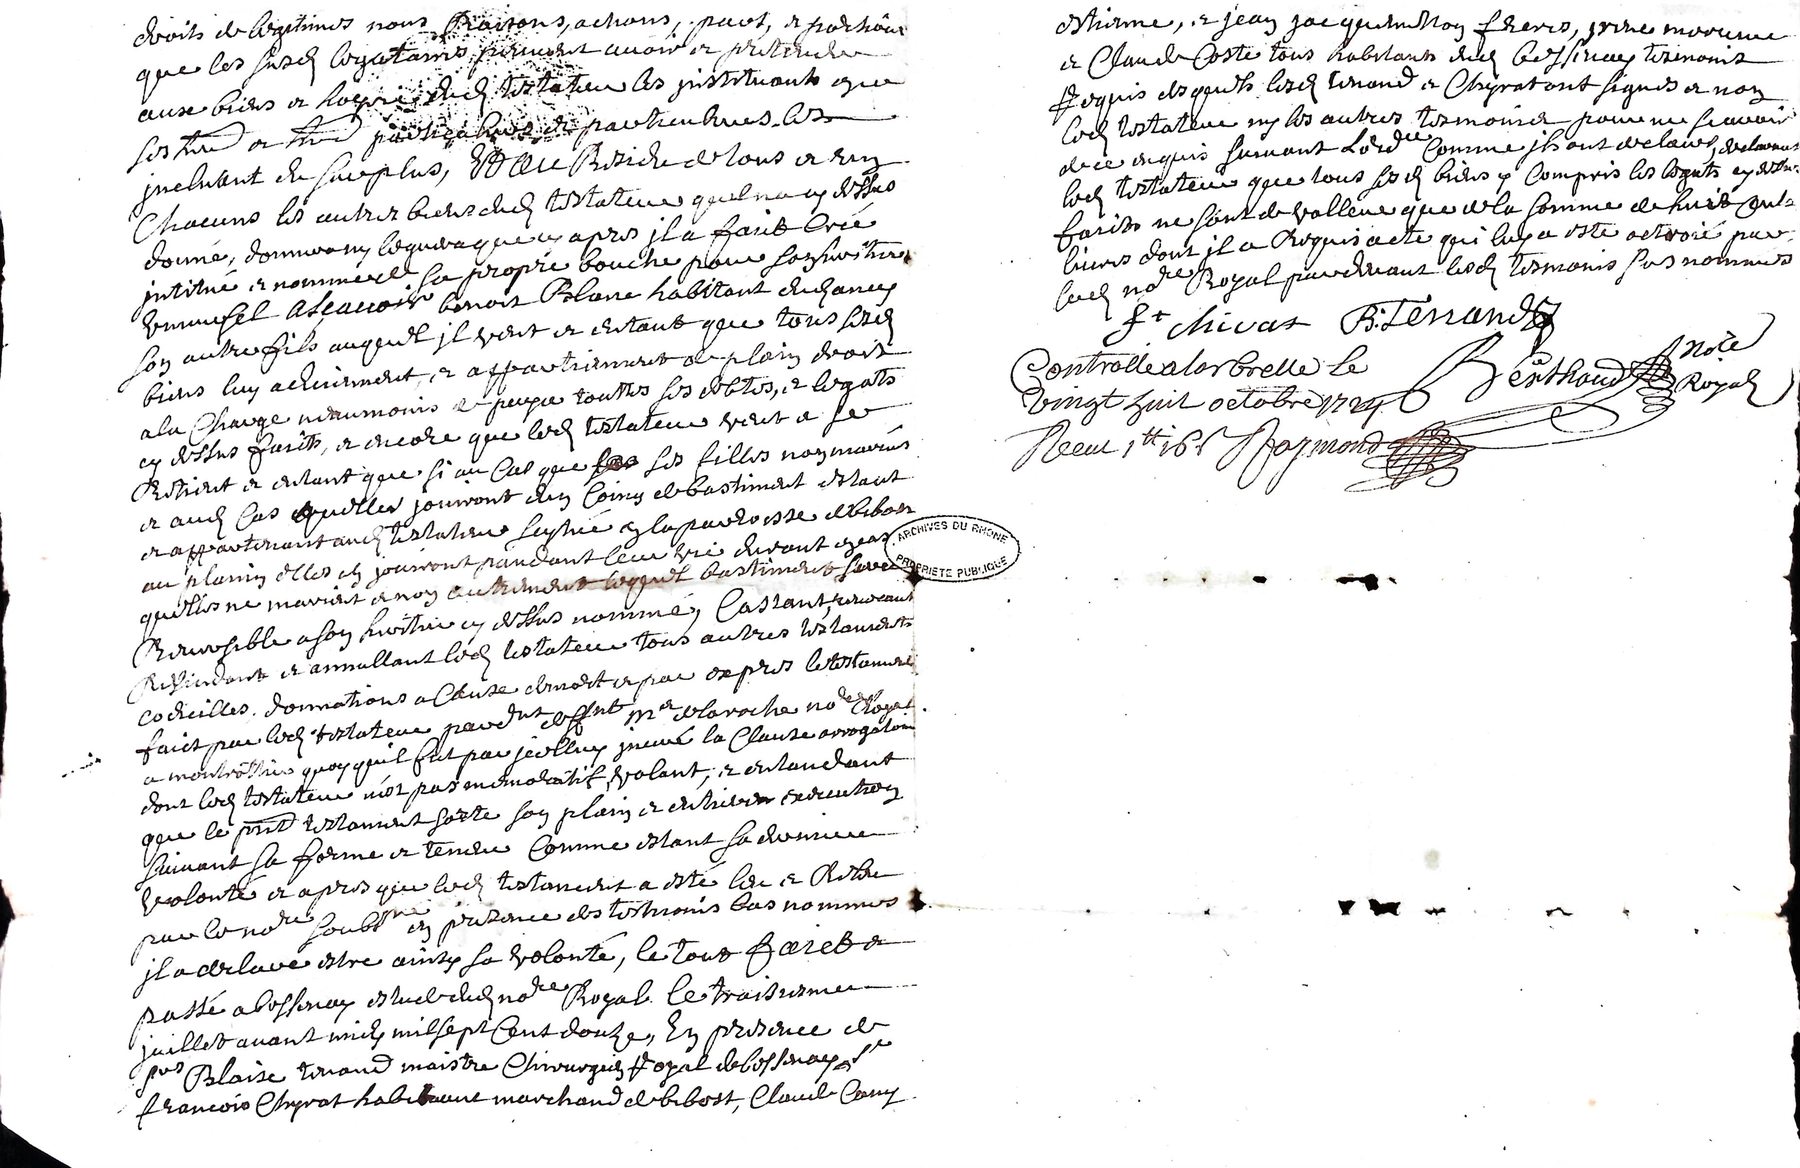 droits de legitimes noms Raisons, actions, part, et portion
que les susd legataires peuvent avoir et pretendre
aux biens et hoyrie dud testateur les instituants
ses her et her particuliers et particulieres les
incluant du surplus, Et au Residu de tous et un
Chacuns les autres biens dud testateur quel na cy dessus
donné, donnera ny leguera que cy apres il a fait Crée
institué et nommé de sa propre bouche pour son heritier
universel a sçauoir benoist Blanc habitant dud ancy
son autre fils auquel il veut et entant que tous sesd
biens luy adviennent, et appartiennent de plain droit
a la Charge neaumoins de payer touttes ses debtes, et legats
cy dessus faits, et encore que led testateur veut a se
Retient et entant que si au Cas que ses filles non mariés
et aud Cas quelles jouiront dun Coing de bastiment estant
et appartenant aud testateur scytué en la parroisse de bibost
au planin elles en jouiront pandant leur vie durant
quelles ne marient et non autrement lequel bastiment sera
Reuersible a son heritier cy dessus nommé, Cassant, revocant
Rescindant et annullant led testateur tous autres testaments
codicilles. donnations a Cause de mort et par expres le testament
fait par led testateur pardnt deffnt mre delaroche nore Royal
a montrottier quoy quil fut par icelluy inceré la Clause arrogatoire
dont led testateur nest pas memoratif, volant, et entandant
que le pnt testament sorte son plain et entiere execution
suivant sa forme et teneur Comme estant sa derniere
volonté et apres que led testament a esté leu et Releu
par le nore soubsne en presence des tesmoins bas nommes
il a declaré estre ainsy sa volonté, le tout fait et
passé a bessenay estude dud nore Royal le traisiesme
juillet avant midy mil sept Cent douze, En presence de
srs Blaise terrand maistre Chirurgien Royal de bessenay sr
françois Chyrat habitant marchand de bibost, Claude Cany
estienne, et jean jacquemetton freres,
et Claude Coste tous habitants dud bessenay tesmoins
Requis desquels lesd terrand et Chyrat ont signés et non
led testateur ny les autres tesmoins pour ne sçauoir
de ce enquis suivant Lordce Comme ils ont declaré, declarant
led testateur que tous sesd biens y Compris les legats cy dessus
faits ne sont de valleur que de la somme de huit Cent
livres dont il a Requis acte qui luy a esté octroié par
led nore Royal pardevant lesd tesmoins sus nommes
ft chirat B: Terrand
Berthaud nore Royal
Controllé a larbrelle le
vingt huit octobre 1724
Receu 1tt 16s Raymond
ARCHIVES DU RHONE
PROPRIETE PUBLIQUE